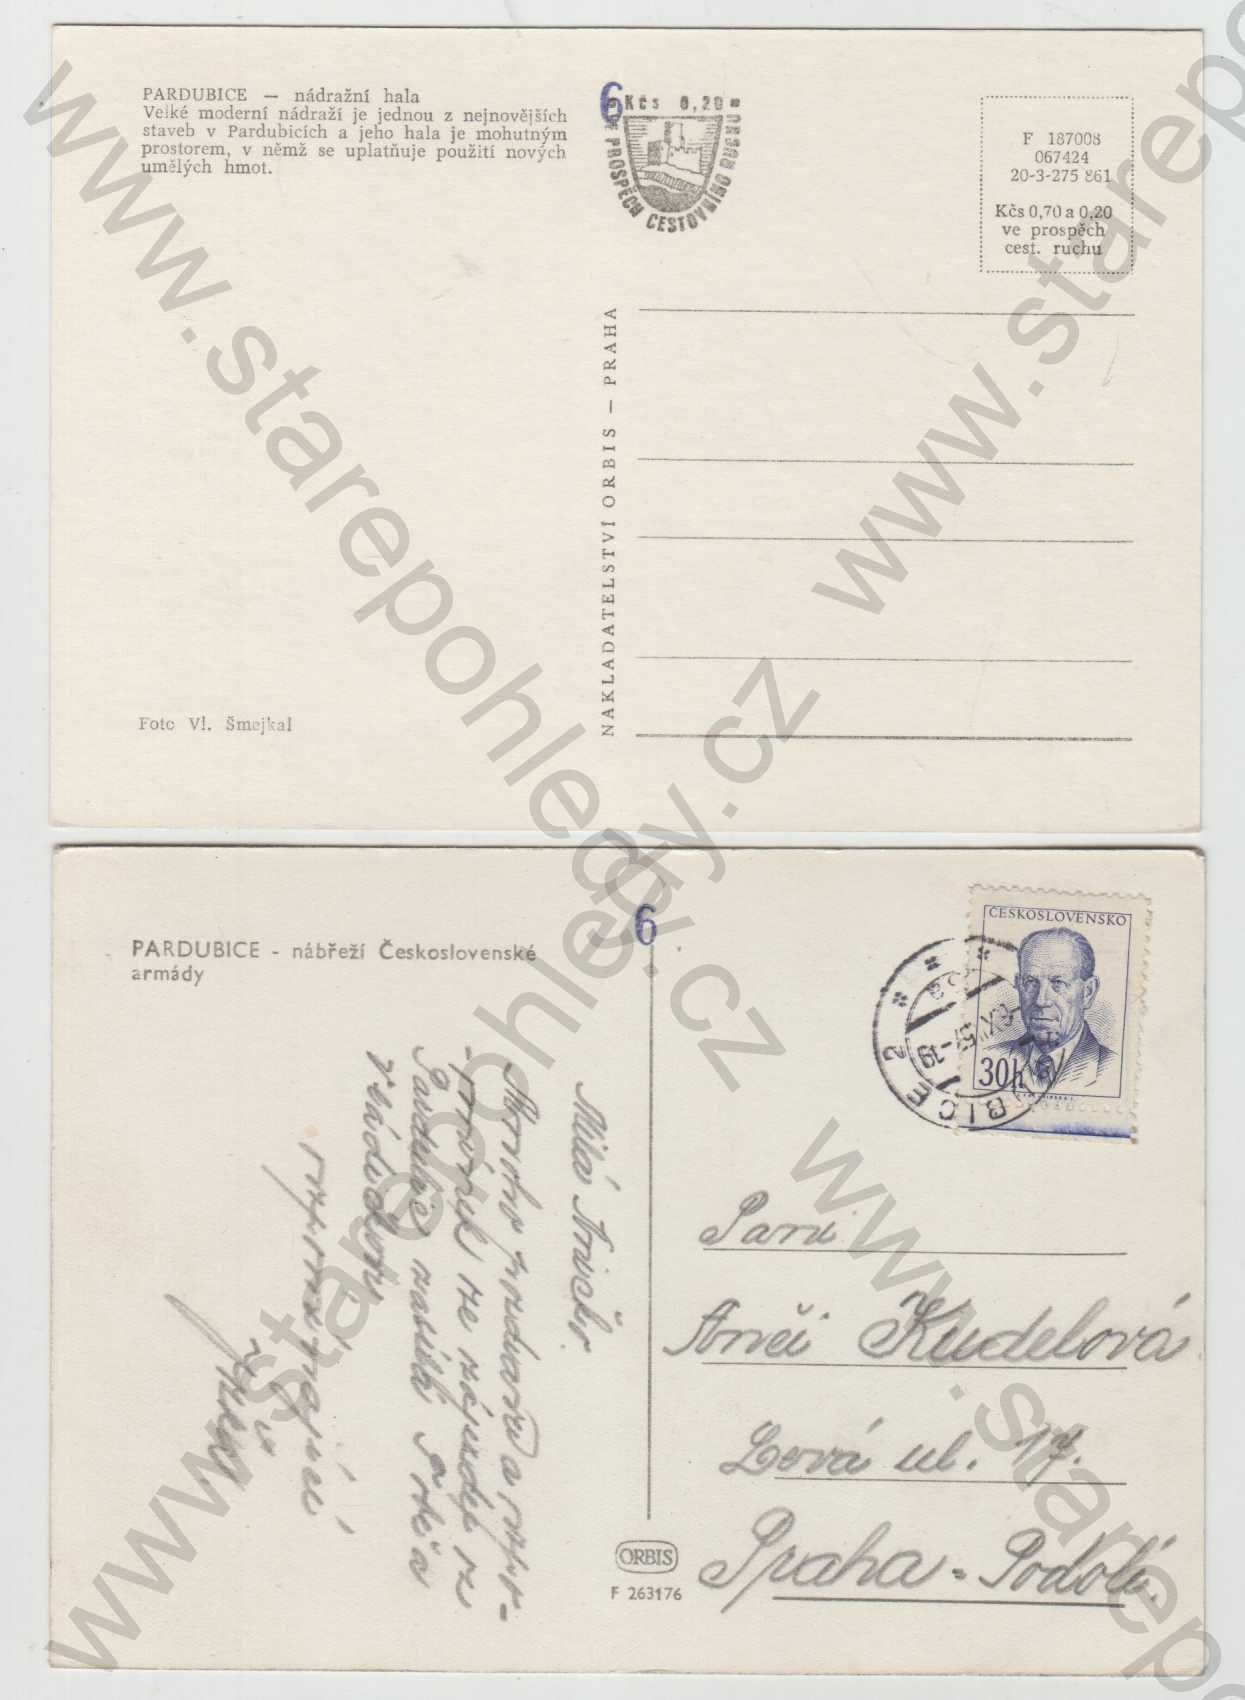 PARDUBICE — nádražní hala
Velké moderní nádraží je jednou z nejnovějších
staveb v Pardubicích a jeho hala je mohutným
prostorem, v němž se uplatňuje použití nových
umělých hmot.
6
Kčs 0,20
VE PROSPĚCH CESTOVNÍHO RUCHU
F 187008
067424
20-3-275 861
Kčs 0,70 a 0,20
ve prospěch
cest. ruchu
NAKLADATELSTVÍ ORBIS — PRAHA
Foto Vl. Šmejkal
PARDUBICE - nábřeží Československé
armády
6
ČESKOSLOVENSKO
30h
BICE 2
Milá
Mnoho pozdravů a
ze zájezdu
Pardubic zasílá
Paní
Anči Kudelová
Levá ul. 17.
Praha - Podolí.
ORBIS
F 263176
www.starepohledy.cz
www.starepohledy.cz
www.starepo